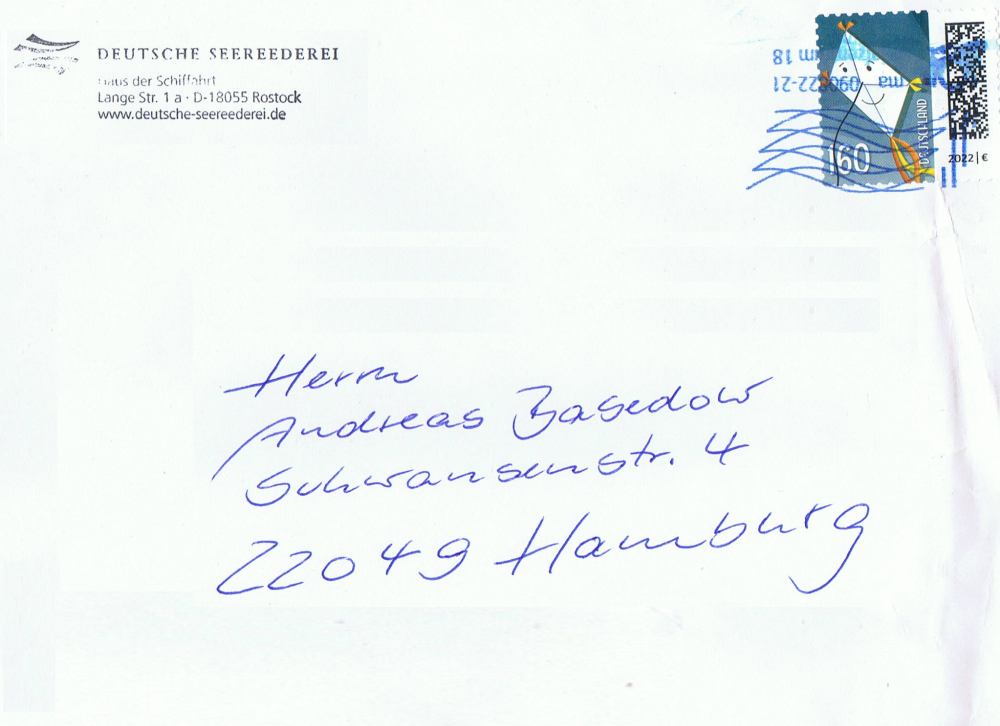 DEUTSCHE SEEREEDEREI
Haus der Schiffahrt
Lange Str. 1 a · D-18055 Rostock
www.deutsche-seereederei.de
160
DEUTSCHLAND
2022 | €
Herrn
Andreas Basedow
Schwansenstr. 4
22049 Hamburg